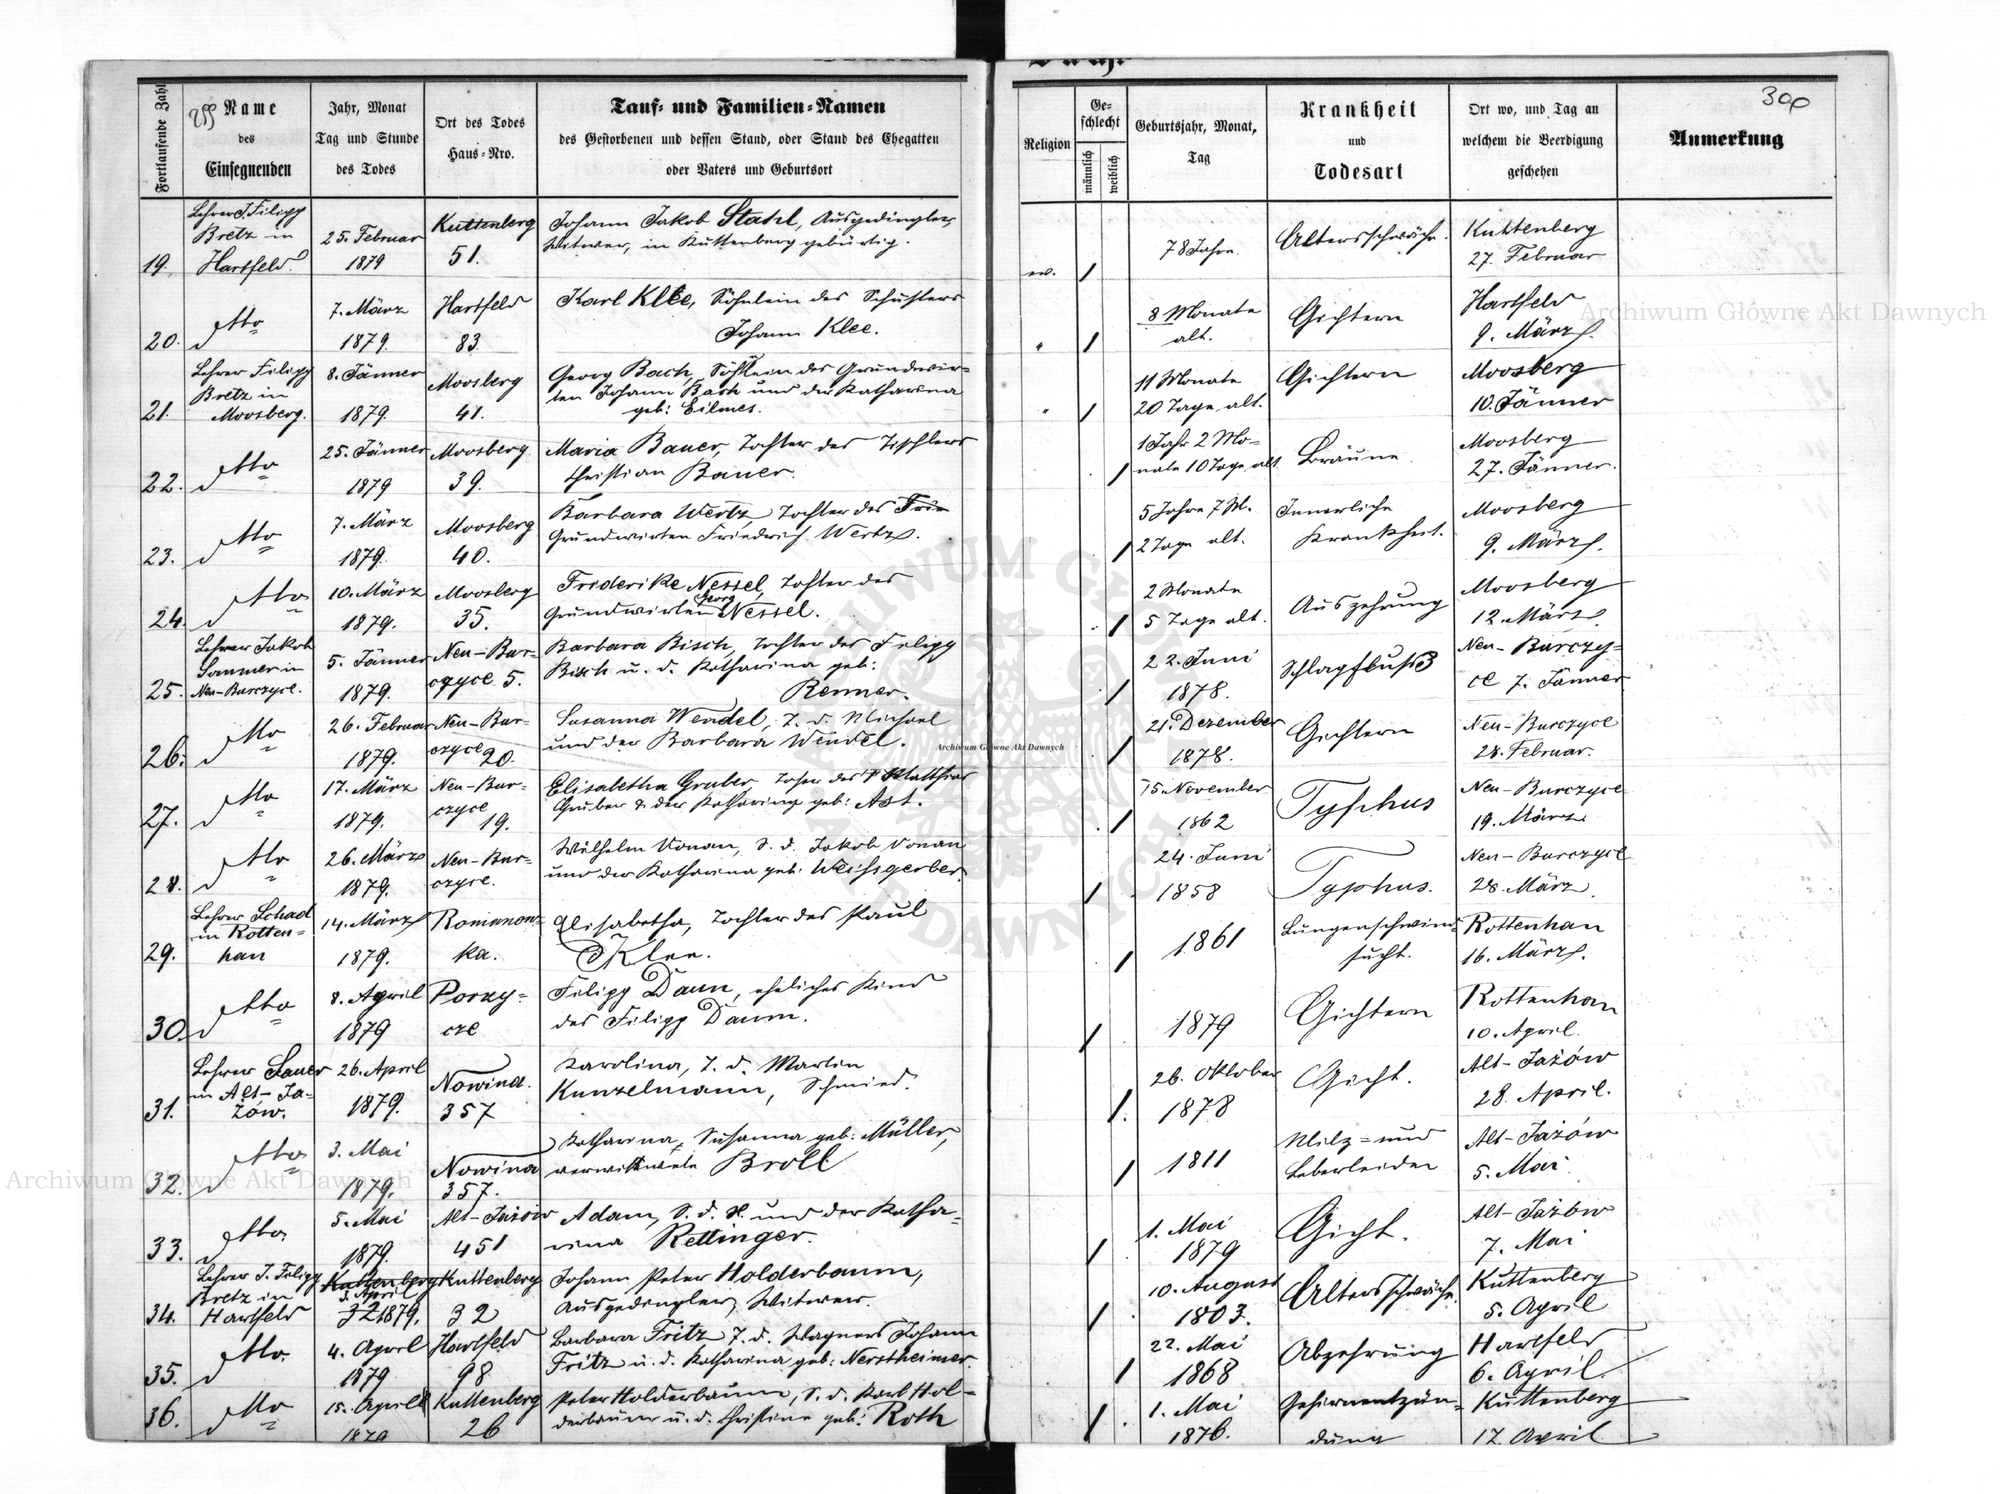 Fortlaufende Zahl
Name
des
Einsegnenden
Jahr, Monat
Tag und Stunde
des Todes
Ort des Todes
Haus-Nro.
Tauf- und Familien-Namen
des Gestorbenen und dessen Stand, oder Stand des Ehegatten
oder Vaters und Geburtsort
Religion
Geschlecht
männlich
weiblich
Geburtsjahr, Monat,
Tag
Krankheit
und
Todesart
Ort wo, und Tag an
welchem die Beerdigung
geschehen
Anmerkung
300
19.
Lehrer J. Filipp
Bretz in
Hartfeld.
25. Februar
1879
Kuttenberg
51.
Johann Jakob Stahl, Ausgedingler,
Witwer, in Kuttenberg gebürtig.
ev.
78 Jahre.
Altersschwäche.
Kuttenberg
27. Februar
20.
dtto
7. März
1879.
Hartfeld
83.
Karl Klee, Söhnlein des Schusters
Johann Klee.
8 Monate
alt.
Gichtern
Hartfeld
9. März
21.
Lehrer Filipp
Bretz in
Moosberg.
8. Jänner
1879.
Moosberg
41.
Georg Bach, Söhnlein des Grundwir-
ten Johann Bach und der Katharina
geb: Eilmes.
11 Monate
20 Tage alt.
Gichtern
Moosberg
10. Jänner
22.
dtto
25. Jänner
1879
Moosberg
39.
Maria Bauer, Tochter des Tischlers
Christian Bauer.
1 Jahr 2 Mo-
nate 10 Tage alt
Bräune.
Moosberg
27. Jänner.
23.
dtto
7. März
1879.
Moosberg
40.
Barbara Wertz, Tochter des
Grundwirten Friedrich Wertz.
5 Jahre 7 M.
2 Tage alt.
Innerliche
Krankheit.
Moosberg
9. März.
24.
dtto
10. März
1879.
Moosberg
35.
Friderike Nessel, Tochter des
Grundwirten Georg Nessel.
2 Monate
5 Tage alt.
Auszehrung
Moosberg
12. März.
25.
Lehrer Jakob
Sommer in
Neu-Burczyce.
5. Jänner
1879.
Neu-Bur-
czyce 5.
Barbara Bisch, Tochter des Filipp
Bisch u. d. Katharina geb:
Renner.
22. Juni
1878.
Schlagfluß
Neu-Burczy-
ce 7. Jänner
26.
dtto
26. Februar
1879.
Neu-Bur-
czyce 20.
Susanna Wendel, T. d. Michael
und der Barbara Wendel.
21. Dezember
1878.
Gichtern
Neu-Burczyce
28. Februar.
27.
dtto
17. März
1879.
Neu-Bur-
czyce
19.
Elisabetha Gruber, Tochter des Matthias
Gruber & der Katharina geb: Ast.
15. November
1862
Typhus
Neu-Burczyce
19. März
28.
dtto
26. März
1879.
Neu-Bur-
czyce.
Wilhelm Vonau, S. d. Jakob Vonau
und der Katharina geb: Weihsgerber.
24. Juni
1858
Typhus.
Neu-Burczyce
28. März.
29.
Lehrer Schad
in Rotten-
han
14. März
1879.
Romanow-
ka.
Elisabetha, Tochter des Paul
Klee.
1861
Lungenschwind-
sucht.
Rottenhan
16. März.
30.
dtto
8. April
1879
Porzy-
cze
Filipp Daum, eheliches Kind
des Filipp Daum.
1879
Gichtern
Rottenhan
10. April.
31.
Lehrer Sauer
in Alt-Ja-
żów.
26. April
1879.
Nowina.
357
Karolina, T. d. Martin
Kunzelmann, Schmied.
26. Oktober
1878
Gicht.
Alt-Jażów
28. April.
32.
dtto
3. Mai
1879.
Nowina
357.
Katharina, Susanna geb: Müller,
verwittwete Broll
1811
Milz- und
Leberleiden
Alt-Jażów
5. Mai.
33.
dtto
5. Mai
1879.
Alt-Jażów
451
Adam, S. d. H. und der Katha-
rina Rettinger.
1. Mai
1879
Gicht.
Alt-Jażów
7. Mai
34.
Lehrer J. Filipp
Bretz in
Hartfeld
Kuttenberg
3. April
32 1879.
Kuttenberg
32
Johann Peter Holderbaum,
Ausgedingler, Witwer.
10. August
1803.
Altersschwäche.
Kuttenberg
5. April
35.
dtto.
4. April
1879
Hartfeld
98
Barbara Fritz T. d. Wagners Johann
Fritz u. d. Katharina geb: Nerstheimer.
22. Mai
1868
Abzehrung
Hartfeld
6. April.
36.
dtto
15. April
1879
Kuttenberg
26
Peter Holderbaum, S. d. Karl Hol-
derbaum u. d. Christine geb: Roth
1. Mai
1876.
Gehirnentzün-
dung
Kuttenberg
17. April
Archiwum Główne Akt Dawnych
Archiwum Główne Akt Dawnych
Archiwum Główne Akt Dawnych
ARCHIWUM GŁÓWNE AKT DAWNYCH